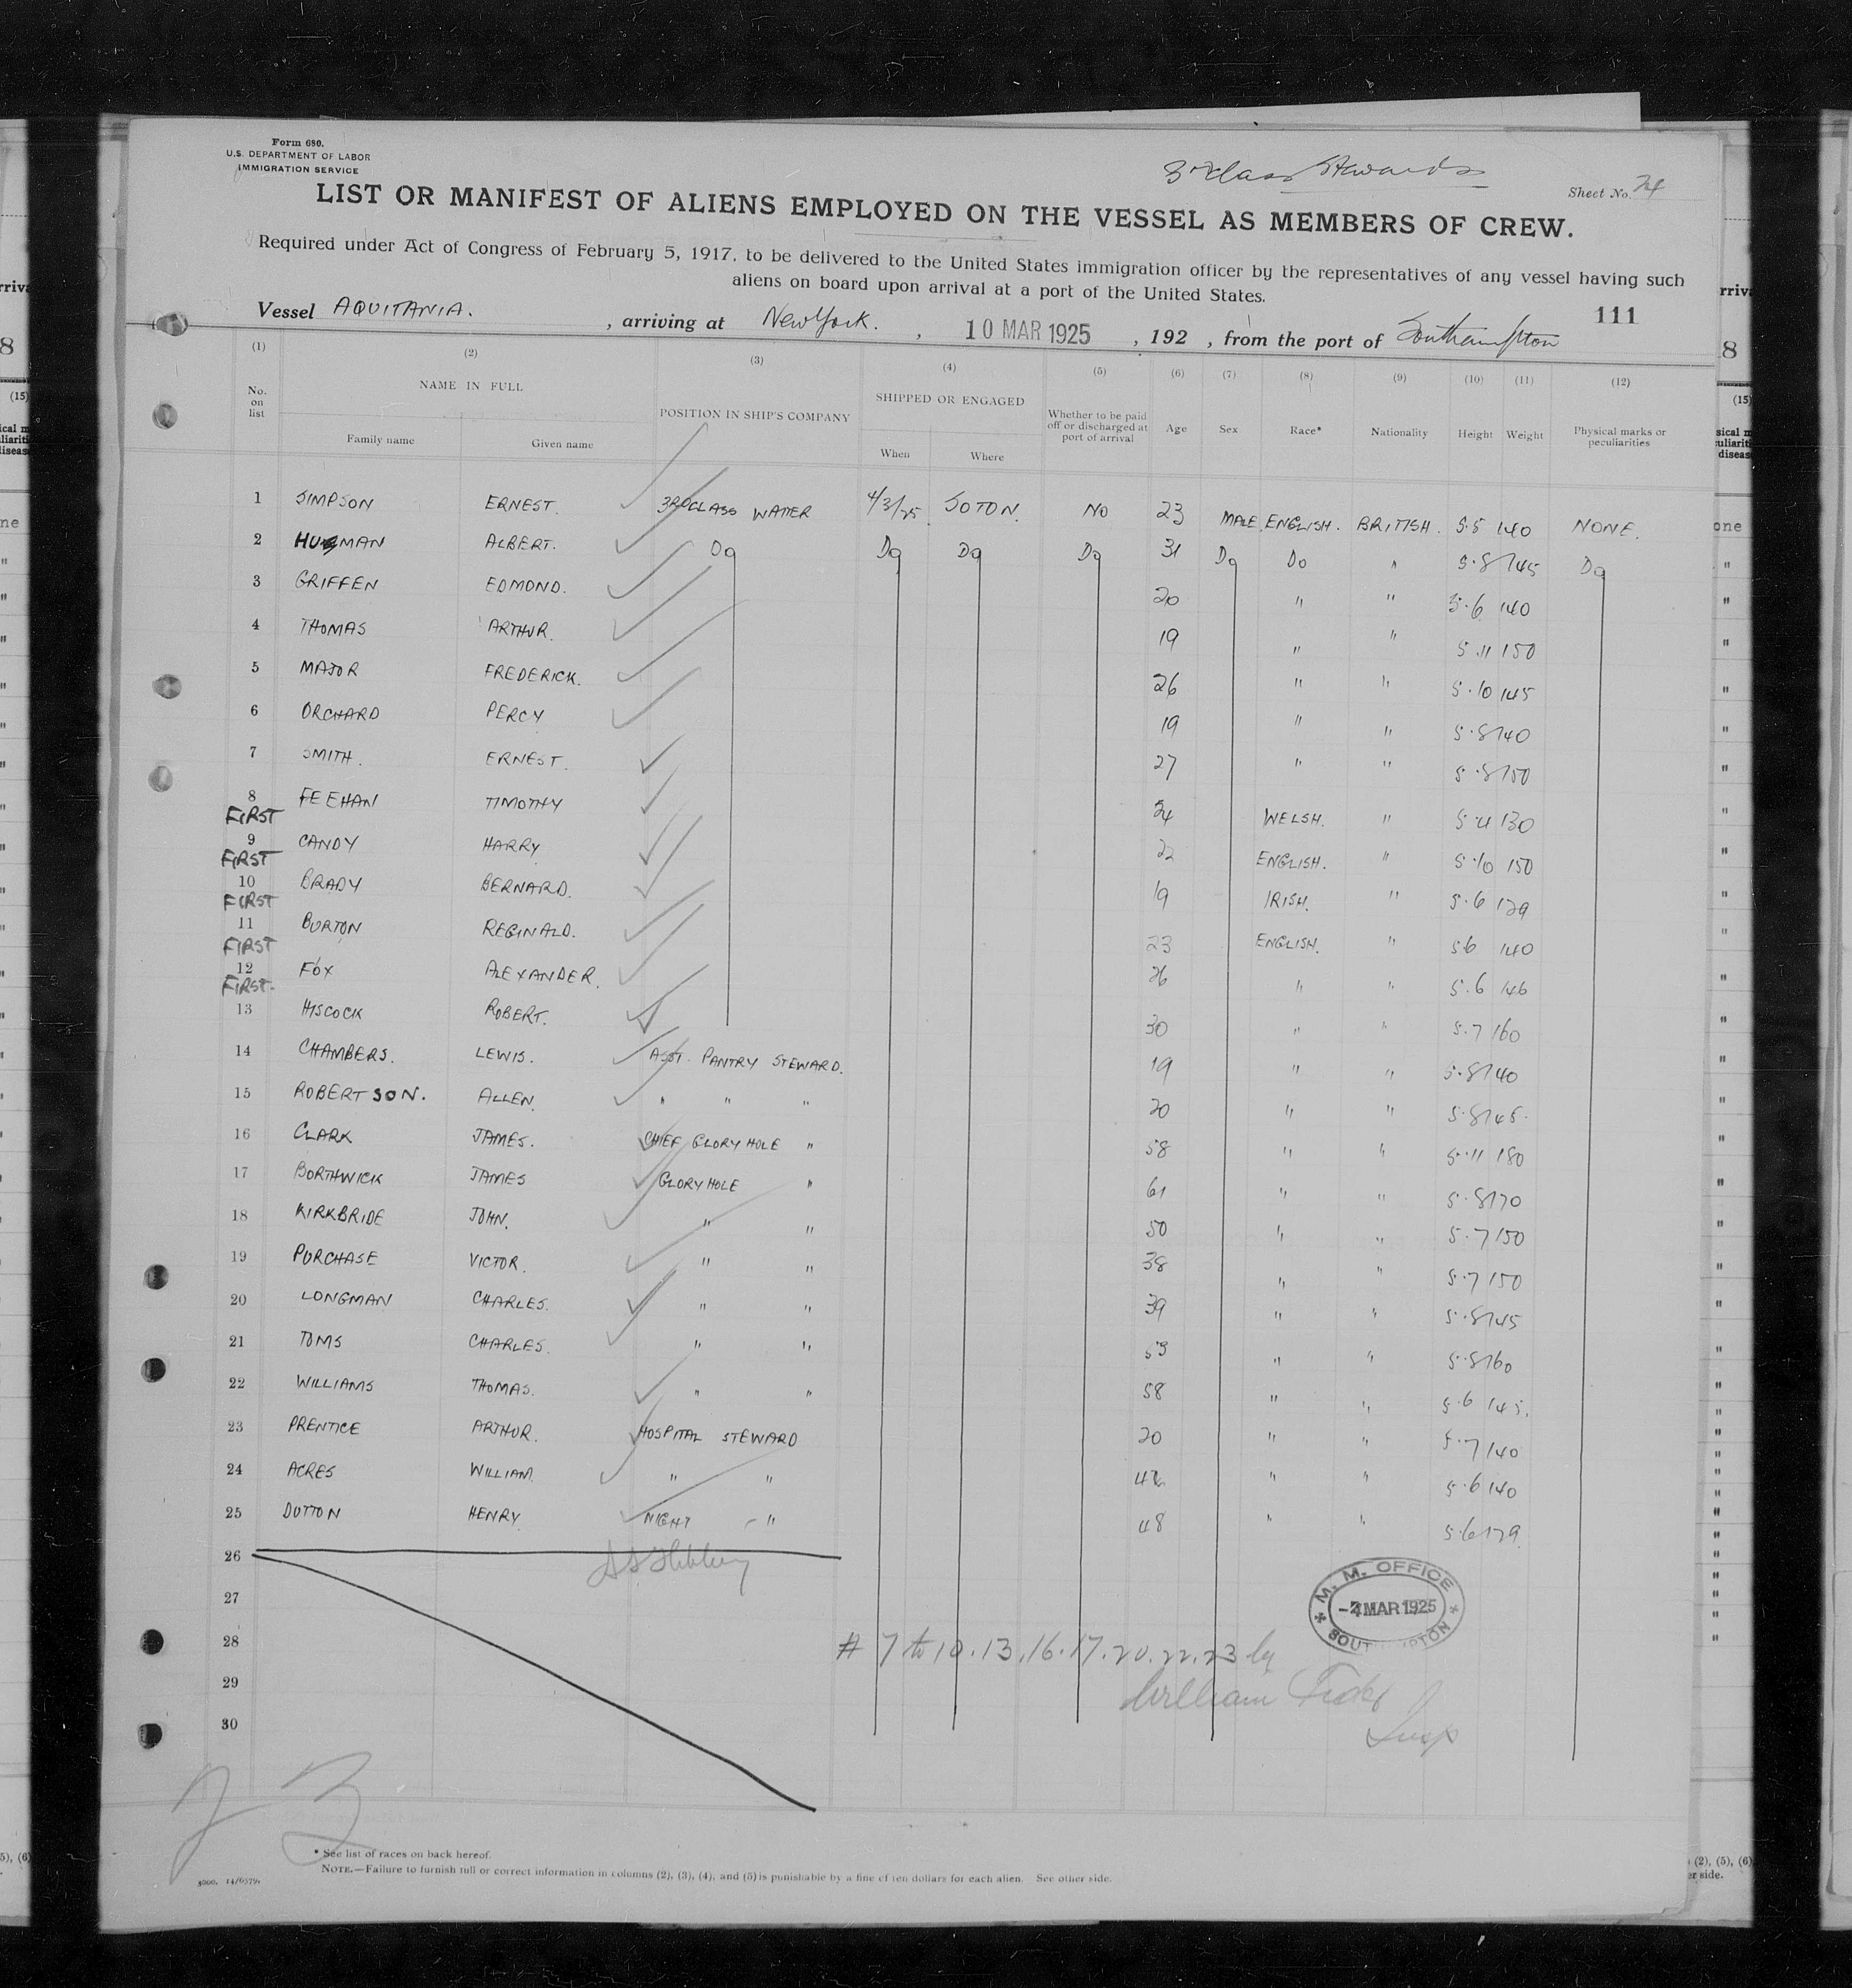 Form 680.
U.S. DEPARTMENT OF LABOR
IMMIGRATION SERVICE
3rd Class Stewards
Sheet No. 24
LIST OR MANIFEST OF ALIENS EMPLOYED ON THE VESSEL AS MEMBERS OF CREW.
Required under Act of Congress of February 5, 1917, to be delivered to the United States immigration officer by the representatives of any vessel having such
aliens on board upon arrival at a port of the United States.
111
Vessel AQUITANIA. , arriving at New York. , 10 MAR 1925 , 192 , from the port of Southampton
(1) (2) (3) (4) (5) (6) (7) (8) (9) (10) (11) (12)
No. on list NAME IN FULL Family name Given name POSITION IN SHIP'S COMPANY SHIPPED OR ENGAGED When Where Whether to be paid off or discharged at port of arrival Age Sex Race* Nationality Height Weight Physical marks or peculiarities
1 SIMPSON ERNEST. 3RD CLASS WAITER 4/3/25. SOTON. NO 23 MALE. ENGLISH. BRITISH. 5.5 140 NONE.
2 HUMAN ALBERT. Do Do Do Do 31 Do Do " 5.8 145 Do
3 GRIFFEN EDMOND. 20 " " 5.6 140
4 THOMAS ARTHUR. 19 " " 5.11 150
5 MAJOR FREDERICK. 26 " " 5.10 145
6 ORCHARD PERCY 19 " " 5.8 140
7 SMITH. ERNEST. 27 " " 5.8 150
8 FEEHAN TIMOTHY 24 WELSH. " 5.4 130
FIRST
9 CANDY HARRY 22 ENGLISH. " 5.10 150
FIRST
10 BRADY BERNARD. 19 IRISH. " 5.6 129
FIRST
11 BURTON REGINALD. 23 ENGLISH. " 5 6 140
FIRST
12 FOX ALEXANDER. 26 " " 5.6 146
FIRST.
13 HISCOCK ROBERT. 30 " " 5.7 160
14 CHAMBERS. LEWIS. ASST. PANTRY STEWARD. 19 " " 5.8 140
15 ROBERTSON. ALLEN. " " " 20 " " 5.8 145.
16 CLARK JAMES. CHIEF GLORY HOLE " 58 " " 5.11 180
17 BORTHWICK JAMES GLORY HOLE " 61 " " 5.8 170
18 KIRKBRIDE JOHN. " " 50 " " 5.7 150
19 PURCHASE VICTOR. " " 38 " " 5.7 150
20 LONGMAN CHARLES. " " 39 " " 5.8 145
21 TOMS CHARLES. " " 53 " " 5.8 160
22 WILLIAMS THOMAS. " " 58 " " 5.6 145.
23 PRENTICE ARTHUR. HOSPITAL STEWARD 20 " " 5.7 140
24 ACRES WILLIAM. " " 42 " " 5.6 140
25 DUTTON HENRY NIGHT " 48 " " 5.6 129.
26
27
28
29
30
M. M. OFFICE
MAR 1925
# 7 to 10.13.16.17.20.22.23 by
William
Insp
* See list of races on back hereof.
NOTE.—Failure to furnish full or correct information in columns (2), (3), (4), and (5) is punishable by a fine of ten dollars for each alien. See other side.